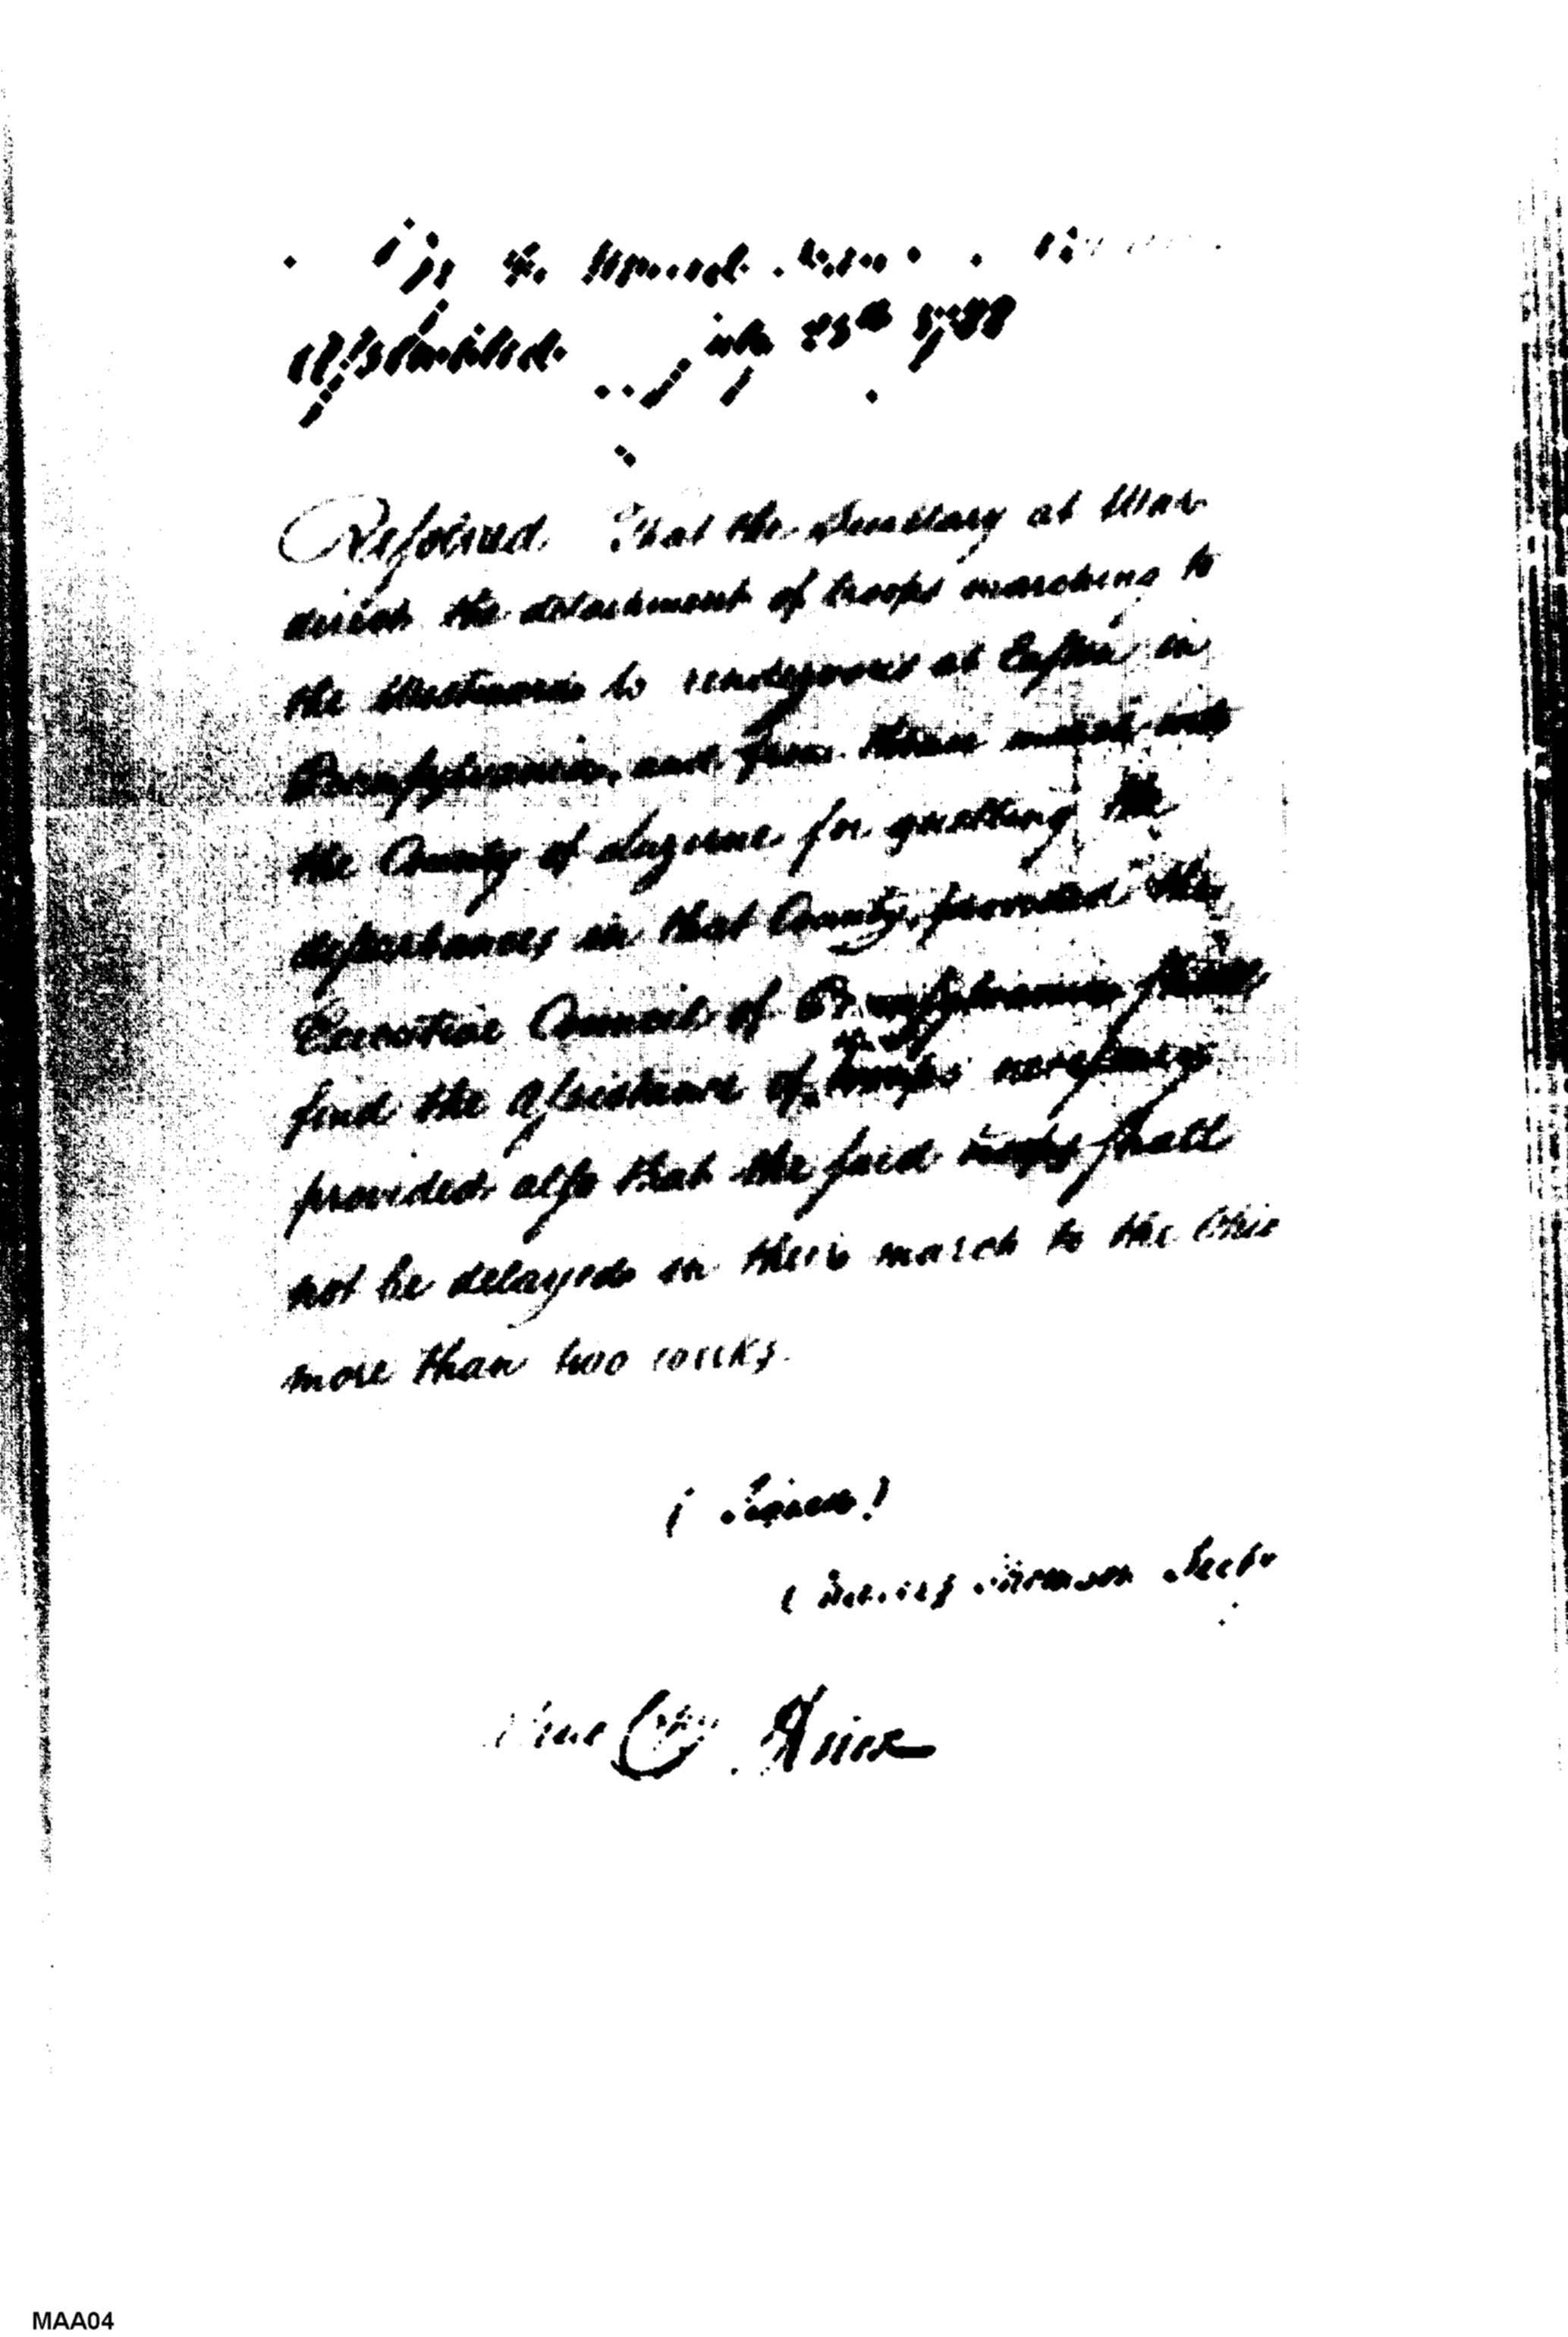 By the United States in Congress
Assembled July 25th 1788
Resolved That the Secretary at War
direct the detachment of troops marching to
the Westward to rendezvous at Easton in
Pennsylvania, and from thence march into
the County of Luzerne for quelling the
disturbances in that County, provided the
Executive Council of Pennsylvania shall
find the assistance of troops necessary
provided also that the said troops shall
not be delayed in their march to the Ohio
more than two weeks.
(Signed)
Charles Thomson Secty
True Copy
MAA04